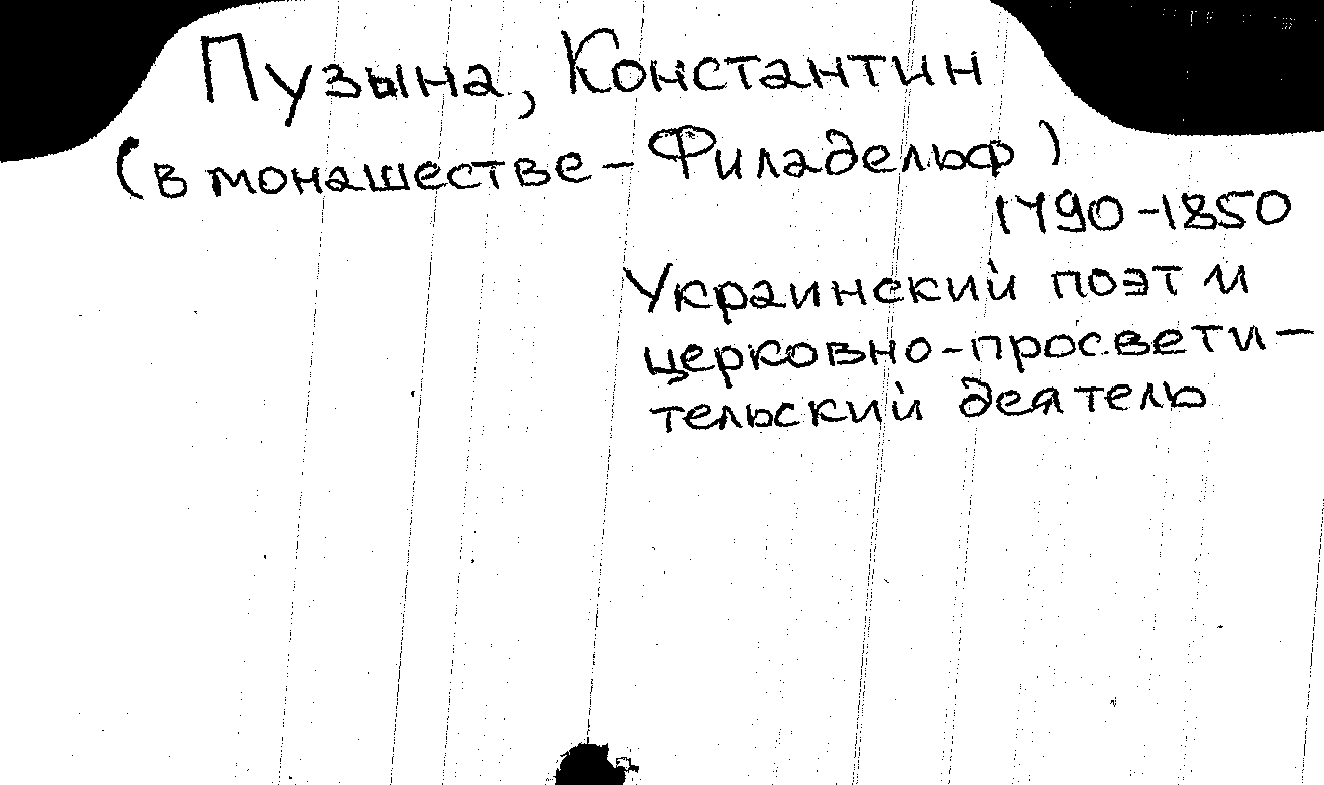 Пузына, Константин
(в монашестве – Филадельф)
1790-1850
Украинский поэт и
церковно-просвети-
тельский деятель